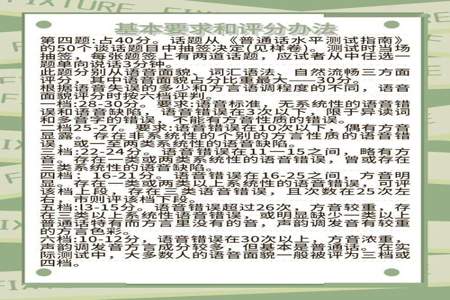 FIXTURE
基本要求和评分办法
第四题:占40分。话题从《普通话水平测试指南》
的50个谈话题目中抽签决定(见样卷)。测试时当场
抽签，每张题签上有两道话题，应试者从中任选一
题单向说话3分钟。
此题分别从语音面貌、词汇语法、自然流畅三方面
评分，其中语音面貌占分比重最大——30分。
根据语音失误的多少和方言语调程度的不同，语音
面貌评分时按六档评判。
一档:28-30分。要求:语音标准，无系统性的语音错
误和语音缺陷，语音错误在3次以下，限于异读词
和多音字的错误，不能有方言性质的错误。
二档25-27。要求:语音错误在10次以下，偶有方音
显露。存在非系统性的个别的方言性质的语音错
误，或一至两类系统性的语音缺陷。
三档:22-24分。语音错误在11一15之间，略有方
音。存在一类或两类系统性的语音错误，曾或存在
三类系统性的语音缺陷。
四档：16-21分。语音错误在16-25之间，方音明
显。存在一类或两类以上系统性的语音错误，可评
该档上段，存在三类语音错误，且次数在25次左
右，市则评该档下段。
五档:l3-15分。语音错误超过26次，方音较重，存
在三类以上系统性语音错误，或明显缺少一类以上
普通话特有而方言里没有的音，声韵调发音有较重
的方言色彩。
六档:10-12分，语音错误在30次以上，方音浓重，
声韵调发音方言成分较多，但基本是普通话。在实
际测试中，大多数人的语音面貌一般被评为三档或
四档。